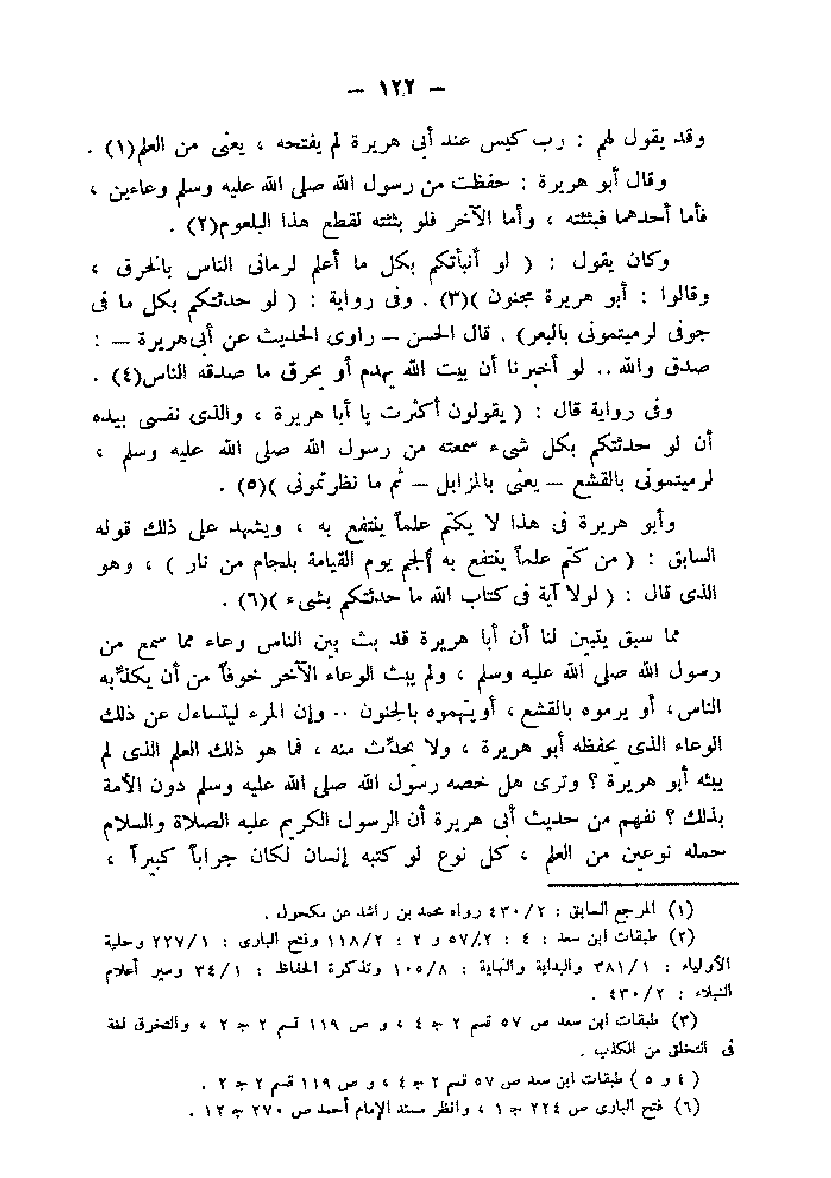 — ١٢٢ —
وقد يقول لهم : رب كيس عند أبى هريرة لم يفتحه ، يعنى من العلم(١) .
وقال أبو هريرة : حفظت من رسول الله صلى الله عليه وسلم وعاءين ،
فأما أحدهما فبثثته ، وأما الآخر فلو بثثته لقطع هذا البلعوم(٢) .
وكان يقول : ( لو أنبأتكم بكل ما أعلم لرمانى الناس بالخرق ،
وقالوا : أبو هريرة مجنون )(٣) . وفى رواية : ( لو حدثتكم بكل ما فى
جوفى لرميتمونى بالبعر) . قال الحسن – راوى الحديث عن أبى هريرة – :
صدق والله .. لو أخبرنا أن بيت الله يهدم أو يحرق ما صدقه الناس(٤) .
وفى رواية قال : ( يقولون أكثرت يا أبا هريرة ، والذى نفسى بيده
أن لو حدثتكم بكل شىء سمعته من رسول الله صلى الله عليه وسلم ،
لرميتمونى بالقشع – يعنى بالمزابل – ثم ما نظرتمونى )(٥) .
وأبو هريرة فى هذا لا يكتم علماً ينتفع به ، ويشهد على ذلك قوله
السابق : ( من كتم علماً ينتفع به ألجم يوم القيامة بلجام من نار ) ، وهو
الذى قال : ( لولا آية فى كتاب الله ما حدثتكم بشىء )(٦) .
مما سبق يتبين لنا أن أبا هريرة قد بث بين الناس وعاء مما سمع من
رسول الله صلى الله عليه وسلم ، ولم يبث الوعاء الآخر خوفاً من أن يكذّبه
الناس، أو يرموه بالقشع ، أو يتهموه بالجنون .. وإن المرء ليتساءل عن ذلك
الوعاء الذى يحفظه أبو هريرة ، ولا يحدّث منه ، فما هو ذلك العلم الذى لم
يبثه أبو هريرة ؟ وترى هل خصه رسول الله صلى الله عليه وسلم دون الأمة
بذلك ؟ نفهم من حديث أبى هريرة أن الرسول الكريم عليه الصلاة والسلام
حمله نوعين من العلم ، كل نوع لو كتبه إنسان لكان جراباً كبيراً ،
(١) المرجع السابق : ٤٣٠/٢ رواه محمد بن راشد عن مكحول .
(٢) طبقات ابن سعد : ٤ : ٥٧/٢ و ٢ : ١١٨/٢ وفتح البارى : ٢٢٧/١ وحلية
الأولياء : ٣٨١/١ والبداية والنهاية : ١٠٥/٨ وتذكرة الحفاظ : ٣٤/١ وسير أعلام
النبلاء : ٤٣٠/٢ .
(٣) طبقات ابن سعد ص ٥٧ قسم ٢ ج ٤ ، و ص ١١٩ قسم ٢ ج ٢ ، والتخرق لغة
فى التخلق من الكذب .
( ٤ و ٥ ) طبقات ابن سعد ص ٥٧ قسم ٢ ج ٤ ، و ص ١١٩ قسم ٢ ج ٢ .
(٦) فتح البارى ص ٢٢٤ ج ١ ، وانظر مسند الإمام أحمد ص ٢٧٠ ج ١٢ .